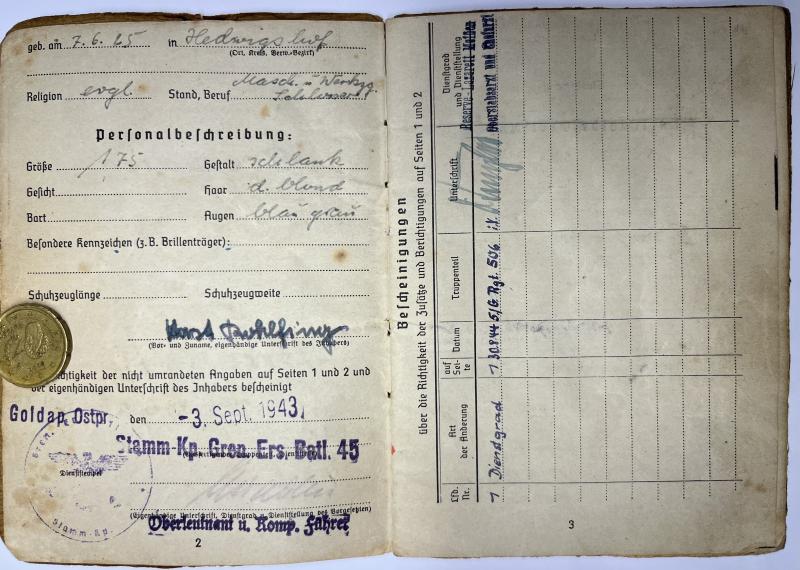 geb. am 7.6.25 in Hedwigshof
(Ort, Kreis, Verw.-Bezirk)
Religion evgl. Stand, Beruf Masch. u. Werkzg.
Schlosser
Personalbeschreibung:
Größe 175 Gestalt schlank
Gesicht Haar d. blond
Bart Augen blau grau
Besondere Kennzeichen (z.B. Brillenträger):
Schuhzeuglänge Schuhzeugweite
Horst Rohlfing
(Vor- und Zuname, eigenhändige Unterschrift des Inhabers)
Richtigkeit der nicht umrandeten Angaben auf Seiten 1 und 2 und
der eigenhändigen Unterschrift des Inhabers bescheinigt
Goldap, Ostpr. den -3. Sept. 1943
Stamm-Kp. Gren. Ers. Batl. 45
Dienststempel
Stamm-Kp.
(Eigenhändige Unterschrift, Dienstgrad u. Dienststellung des Vorgesetzten)
Oberleutnant u. Komp. Führer
2
Bescheinigungen
über die Richtigkeit der Zusätze und Berichtigungen auf Seiten 1 und 2
Lfd. Nr. Art der Änderung auf Seite Datum Truppenteil Unterschrift Dienstgrad und Dienststellung
1 Dienstgrad 1 30.8.44 5/G.Rgt. 506 i.V. Reserve-Lazarett
Oberstabsarzt und Chefarzt
3